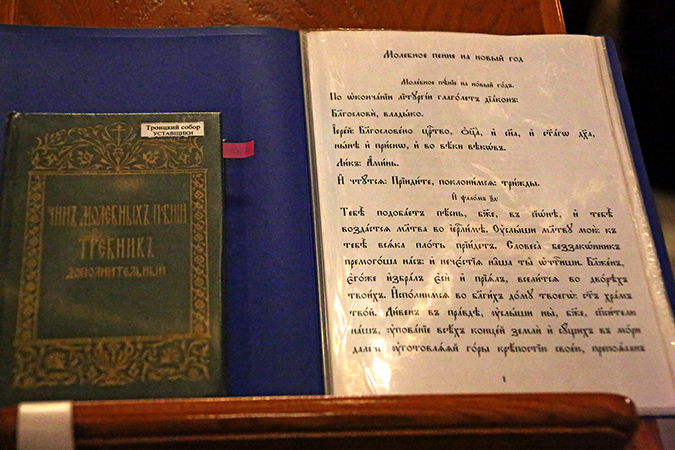 Троицкий собор
УСТАВЩИКИ
ЧИНЪ МОЛЕБНЫХЪ ПѢНІЙ
ТРЕБНИКЪ
ДОПОЛНИТЕЛЬНЫЙ
Молебное пение на новый год
Молебное пѣнїе на новый годъ.
По ѡ҆кончанїи лїтꙋргїи глаго́летъ дїа́конъ:
Благослови̂, влады́ко.
І҆ере́й: Благослове́но црⷭ҇тво, ѻ҆ц҃а̀, и҆ сн҃а, и҆ ст҃а́гѡ дх҃а,
ны́нѣ и҆ при́снѡ, и҆ во вѣ́ки вѣкѡ́въ.
Ли́къ: А҆ми́нь.
И҆ чтꙋ́тсѧ: Прїиди́те, поклони́мсѧ: три́жды.
И҆ ѱало́мъ
Тебѣ̀ подоба́етъ пѣ́снь, бж҃е, въ сїѡ́нѣ, и҆ тебѣ̀
возда́стсѧ мл҃тва во і҆ер҇ли́мѣ. Оу҆слы́ши мл҃твꙋ мою̀: къ
тебѣ̀ всѧ́ка пло́ть прїи́детъ. Словеса̀ беззако́нникъ
премого́ша на́съ: и҆ нече́стїѧ на̑ша ты̀ ѡ҆чⷭ҇тиши. Бл҃же́нъ,
є҆го́же и҆збра́лъ є҆сѝ и҆ прїѧ́лъ, всели́тсѧ во дво́рѣхъ
твои́хъ. И҆спо́лнимсѧ во благи́хъ до́мꙋ твоегѡ̀: ст҃ъ хра́мъ
тво́й. Ди́венъ въ пра́вдѣ, оу҆слы́ши ны̀, бж҃е, сп҃си́телю
на́шъ, оу҆пова́нїе всѣ́хъ конце́й землѝ и҆ сꙋ́щихъ въ мо́ри
дале́че: оу҆готовлѧ́ѧй го́ры крѣ́постїю свое́ю, препоѧ́санъ
1